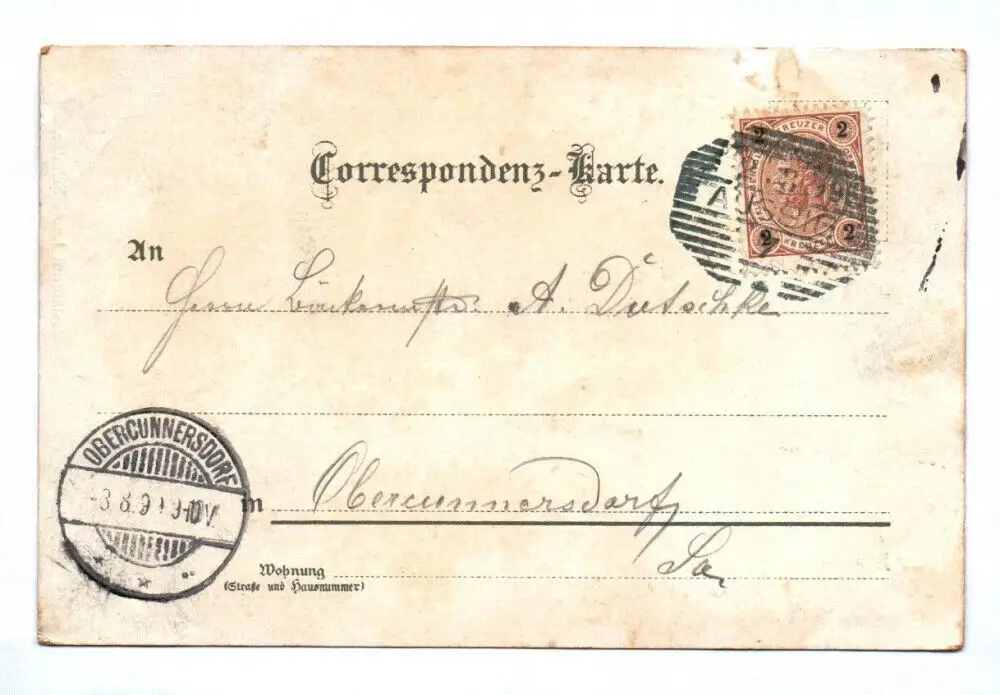 Correspondenz-Karte.
2 KREUZER 2
2 KREUZER 2
An
Herrn Bäckermstr. A. Dutschke
OBERCUNNERSDORF
-3.8.9 9-10V.
in Obercunnersdorf
Sa.
Wohnung
(Straße und Hausnummer)